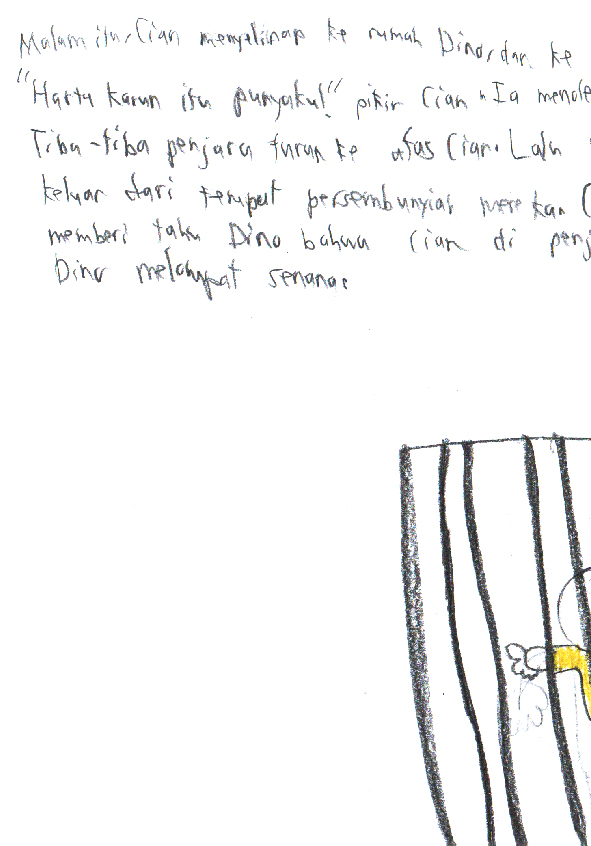 Malam itu, Cian menyelinap ke rumah Dino, dan ke
"Harta karun itu punyaku!" pikir Cian. Ia menole
Tiba-tiba penjara turun ke atas Cian. Lalu
keluar dari tempat persembunyian mereka. C
memberi tahu Dino bahwa Cian di penj
Dino melompat senang.